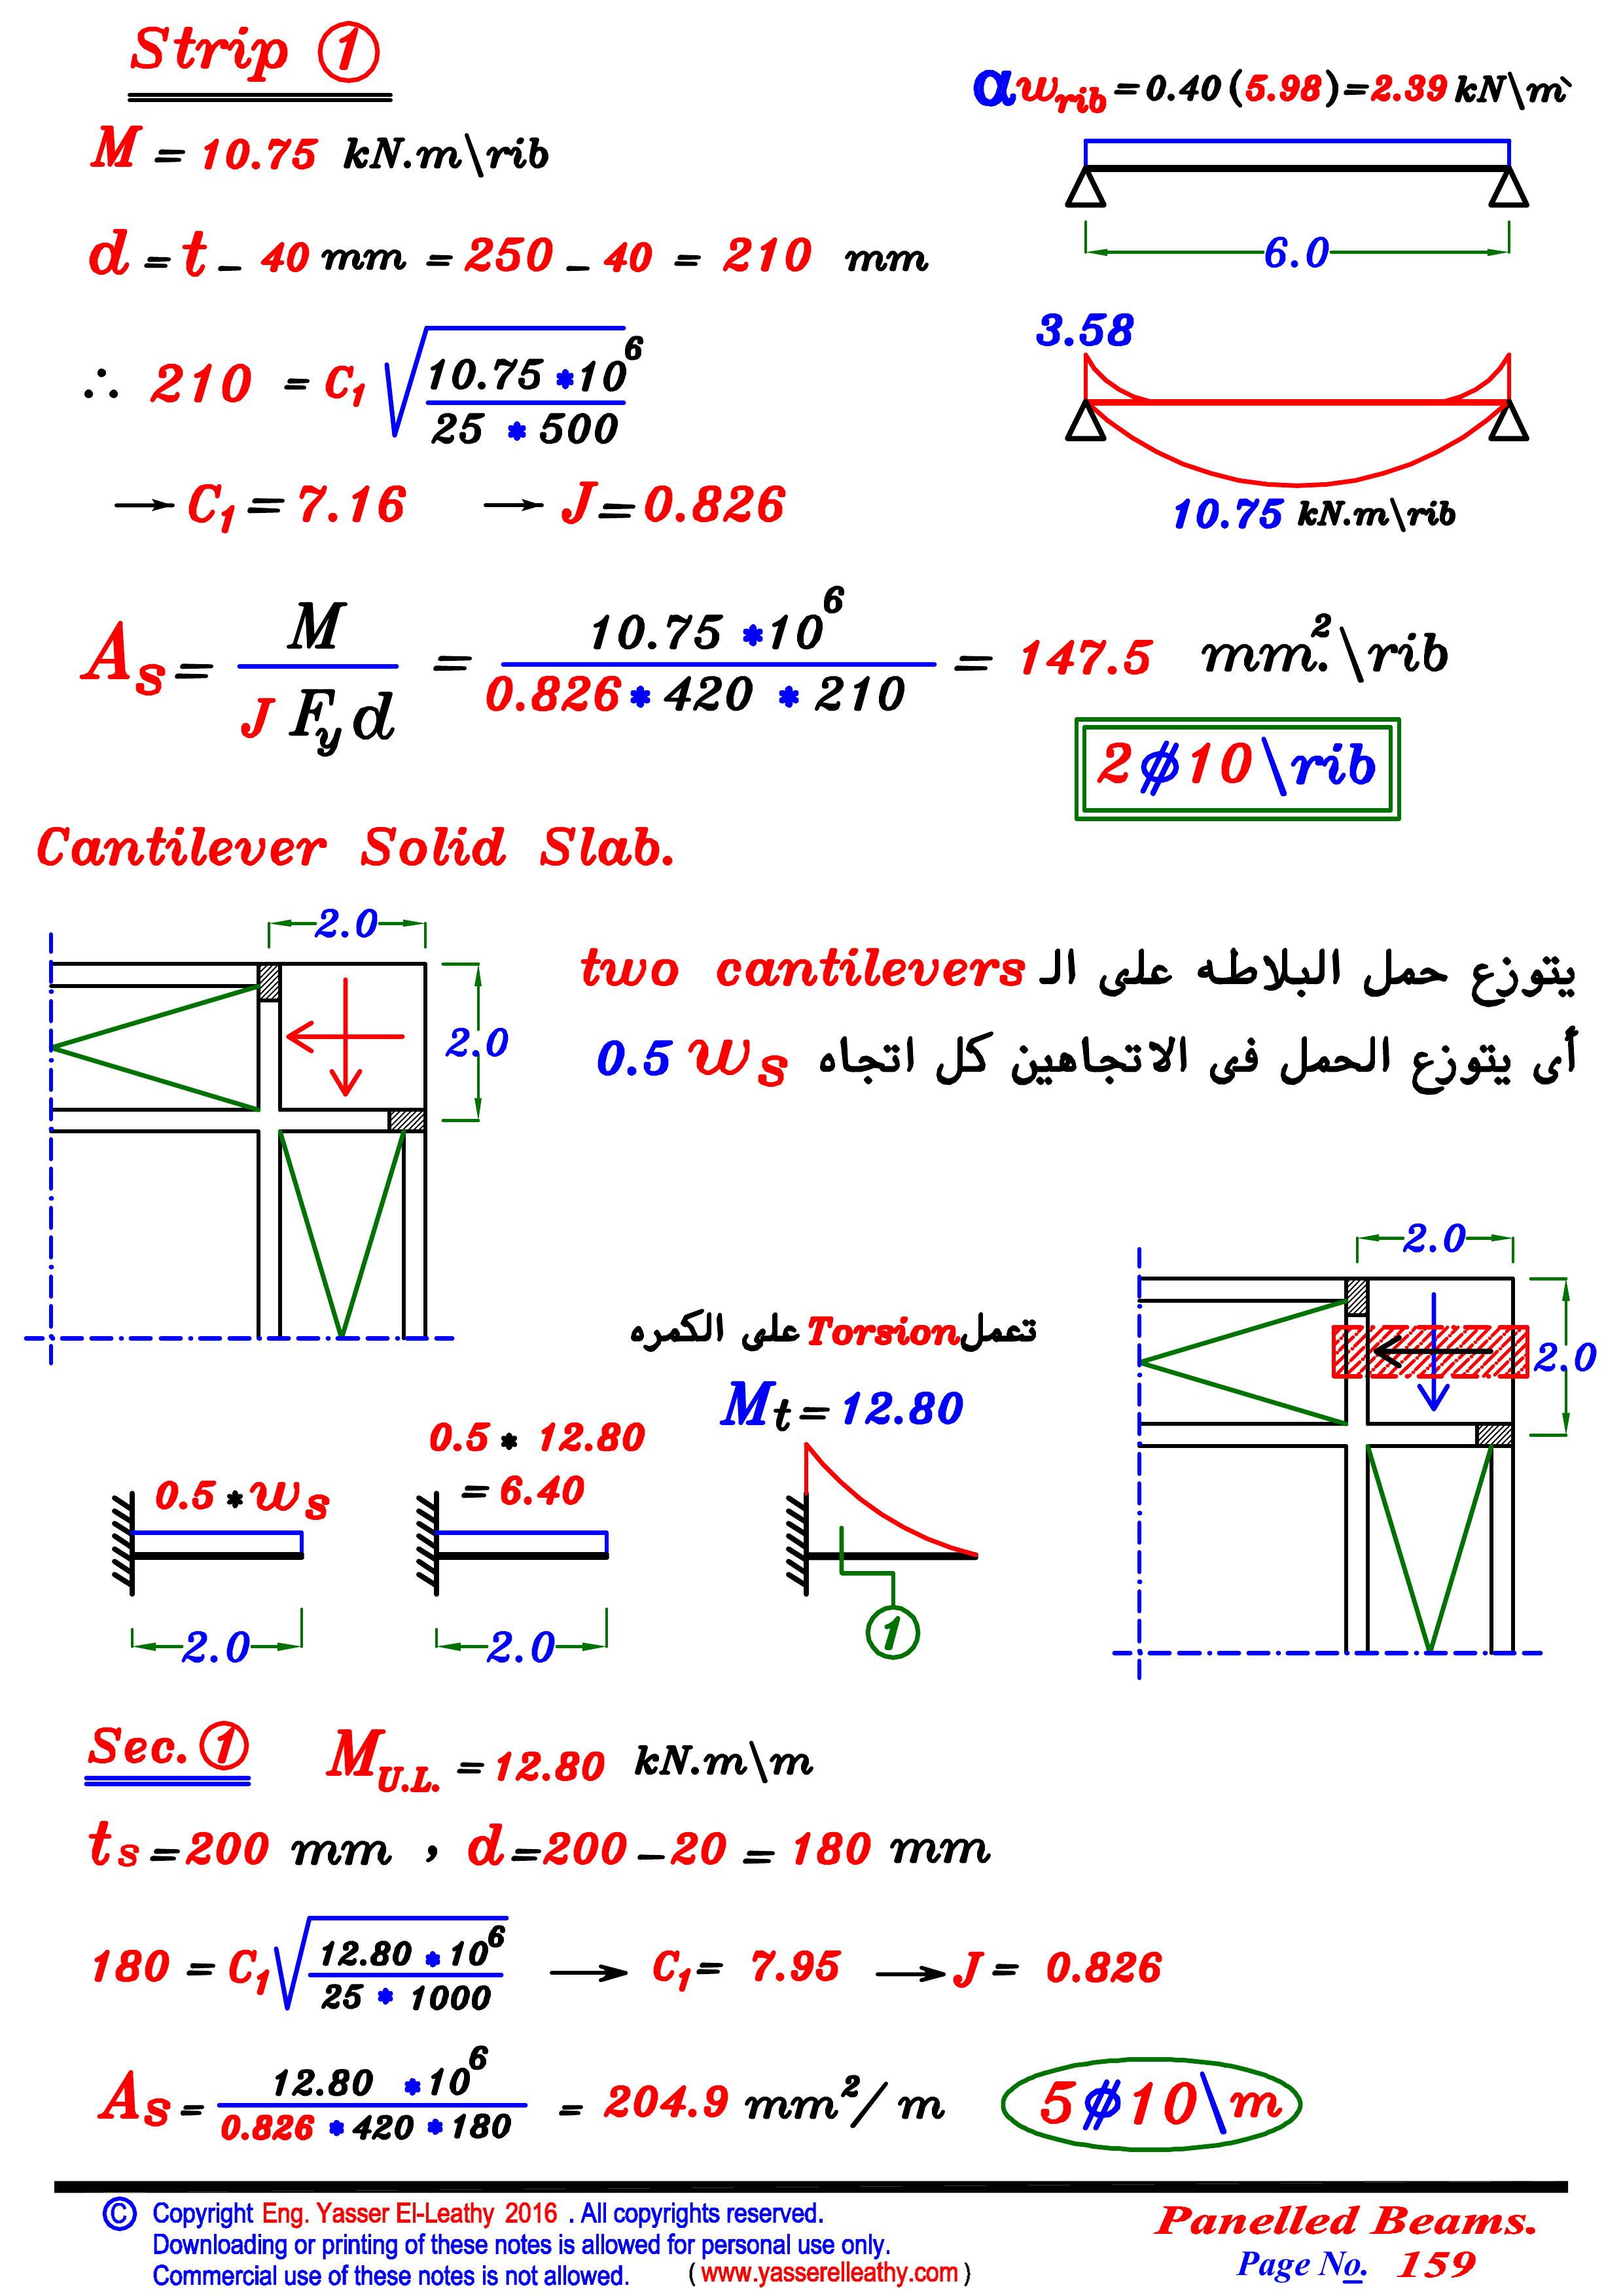 Strip 1
αw_rib = 0.40 (5.98) = 2.39 kN\m`
M = 10.75 kN.m\rib
6.0
d = t - 40 mm = 250 - 40 = 210 mm
3.58
∴ 210 = C1 √(10.75 * 10^6 / 25 * 500)
→ C1 = 7.16 → J = 0.826
10.75 kN.m\rib
As = M / J Fy d = 10.75 * 10^6 / 0.826 * 420 * 210 = 147.5 mm.²\rib
2ϕ10\rib
Cantilever Solid Slab.
2.0
2.0
يتوزع حمل البلاطه على الـ two cantilevers
أى يتوزع الحمل فى الاتجاهين كل اتجاه 0.5 ws
2.0
2.0
تعمل Torsion على الكمره
Mt = 12.80
0.5 * ws
0.5 * 12.80
= 6.40
2.0
2.0
1
Sec. 1 M U.L. = 12.80 kN.m\m
ts = 200 mm , d = 200 - 20 = 180 mm
180 = C1 √(12.80 * 10^6 / 25 * 1000) → C1 = 7.95 → J = 0.826
As = 12.80 * 10^6 / 0.826 * 420 * 180 = 204.9 mm²/m 5ϕ10\m
© Copyright Eng. Yasser El-Leathy 2016 . All copyrights reserved.
Downloading or printing of these notes is allowed for personal use only.
Commercial use of these notes is not allowed. ( www.yasserelleathy.com )
Panelled Beams.
Page No. 159